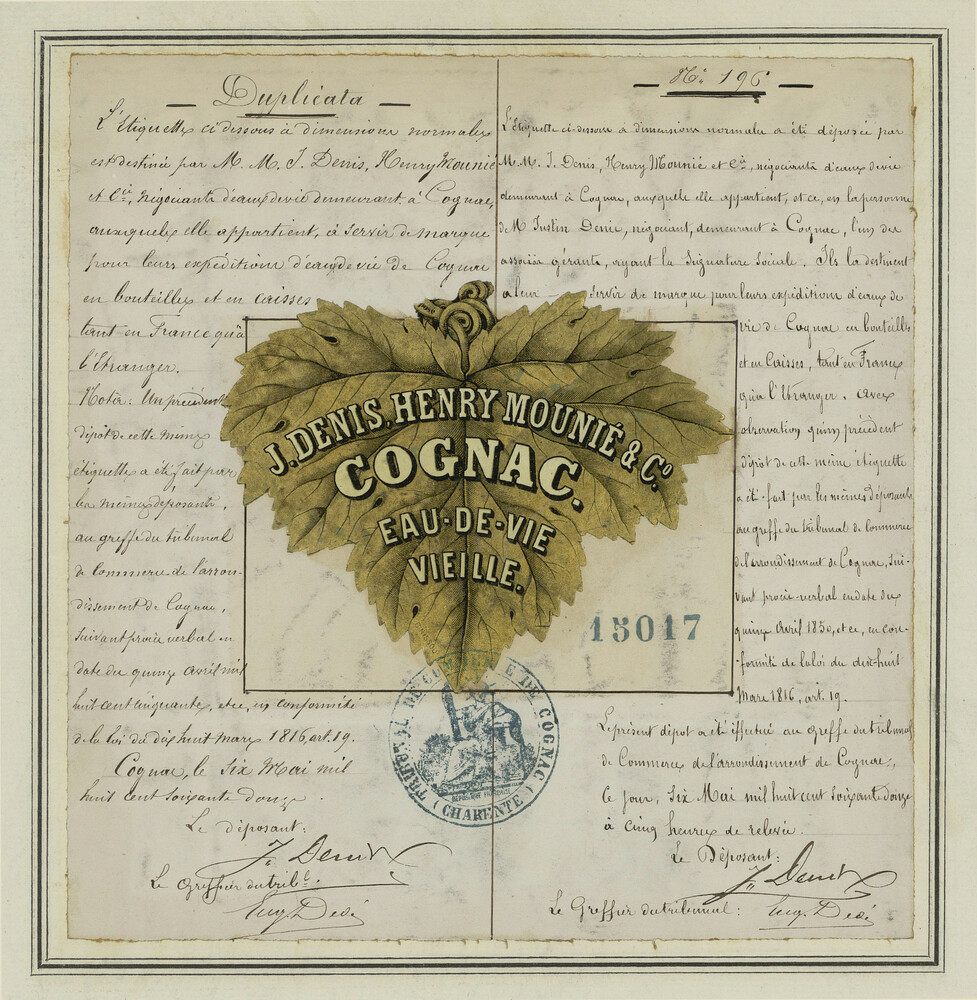 Duplicata
L'étiquette ci-dessous à dimensions normales
est destinée par M. M. J. Denis, Henry Mounié
et Cie, négociants d'eaux de vie demeurant à Cognac,
auxquels elle appartient, à servir de marque
pour leurs expéditions d'eaux de vie de Cognac
en bouteilles et en caisses
tant en France qu'à
l'Etranger.
Nota: Un précédent
dépôt de cette même
étiquette a été fait par
les mêmes déposants,
au greffe du tribunal
de Commerce de l'arron-
dissement de Cognac,
suivant procès verbal en
date du quinze avril mil
huit cent cinquante, et ce, en conformité
de la loi du dix huit mars 1816, art. 19.
Cognac, le Six Mai mil
huit cent soixante douze.
Le déposant:
J. Denis
Le Greffier du tribl.
Eug. Dedé
No. 196
L'étiquette ci-dessous à dimension normale a été déposée par
M. M. J. Denis, Henry Mounié et Cie, négociants d'eaux de vie
demeurant à Cognac, auxquels elle appartient, et ce, en la personne
de M. Justin Denis, négociant, demeurant à Cognac, l'un des
associés gérants, ayant la Signature Sociale. Ils la destinent
à leur servir de marque pour leurs expéditions d'eaux de
vie de Cognac en bouteilles
et en Caisses, tant en France
qu'à l'Etranger. avec
observation qu'un précédent
dépôt de cette même étiquette
a été fait par les mêmes déposants
au greffe du tribunal de Commerce
de l'arrondissement de Cognac, Sui-
vant procès-verbal en date du
quinze Avril 1850, et ce, en con-
formité de la loi du dix-huit
Mars 1816, art. 19.
Le présent dépôt a été effectué au Greffe du tribunal
de Commerce de l'arrondissement de Cognac,
Ce jour, Six Mai mil huit cent soixante douze
à Cinq heures de relevée.
Le Déposant:
J. Denis
Le Greffier du tribunal:
Eug. Dedé
J. DENIS, HENRY MOUNIÉ & Co
COGNAC.
EAU-DE-VIE
VIEILLE.
15017
TRIBUNAL DE COMMERCE DE COGNAC
RÉPUBLIQUE FRANÇAISE
(CHARENTE)